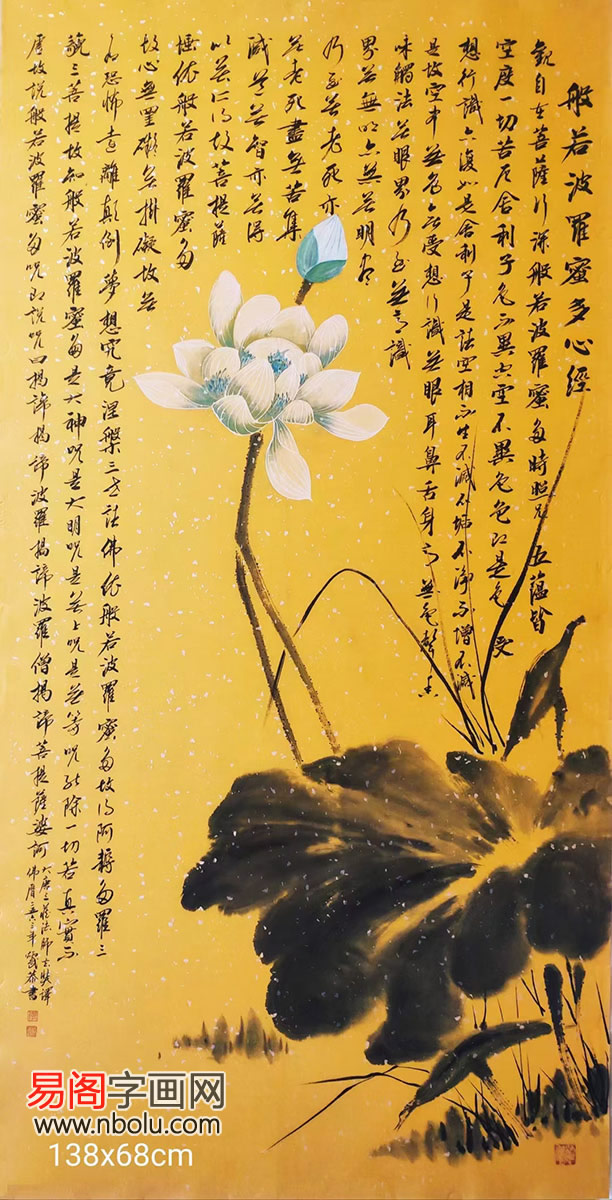 般若波羅蜜多心經
觀自在菩薩行深般若波羅蜜多時照見五蘊皆
空度一切苦厄舍利子色不異空空不異色色即是色受
想行識亦復如是舍利子是諸空相不生不滅不垢不淨不增不減
是故空中無色無受想行識無眼耳鼻舌身意無色聲香
味觸法無眼界乃至無意識
界無無明亦無無明盡
乃至無老死亦
無老死盡無苦集
滅道無智亦無得
以無所得故菩提薩
埵依般若波羅蜜多
故心無罣礙無掛礙故無
有恐怖遠離顛倒夢想究竟涅槃三世諸佛依般若波羅蜜多故得阿耨多羅三
藐三菩提故知般若波羅蜜多是大神咒是大明咒是無上咒是無等咒能除一切苦真實不
虛故說般若波羅蜜多咒即說咒曰揭諦揭諦波羅揭諦波羅僧揭諦菩提薩婆訶
大唐三藏法師玄奘譯
佛曆二五六三年書
易阁字画网
www.nbolu.com
138x68cm